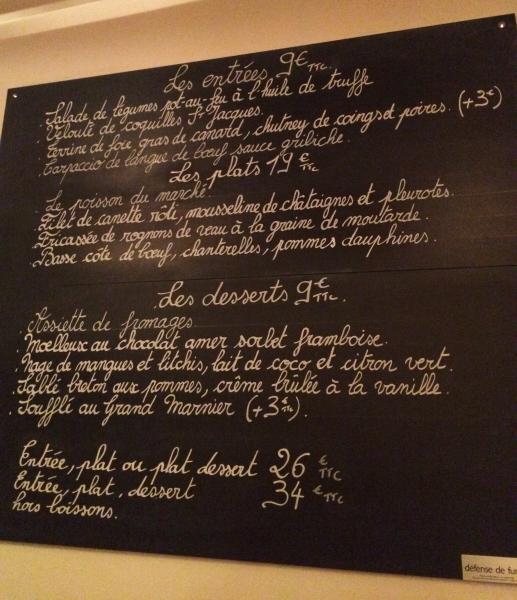 Les entrées 9€ TTC.
. Salade de légumes pot-au-feu à l'huile de truffe
. Velouté de coquilles St Jacques.
. Terrine de foie gras de canard, chutney de coings et poires. (+3€)
. Carpaccio de langue de bœuf sauce gribiche.
Les plats 19 € TTC
. Le poisson du marché.
. Filet de canette rôti, mousseline de châtaignes et pleurotes.
. Fricassée de rognons de veau à la graine de moutarde.
. Basse côte de bœuf, chanterelles, pommes dauphines.
Les desserts 9€ TTC.
. Assiette de fromages
. Moelleux au chocolat amer sorbet framboise.
. Nage de mangues et litchis, lait de coco et citron vert.
. Sablé breton aux pommes, crème brûlée à la vanille.
. Soufflé au Grand Marnier (+3€ TTC).
Entrée, plat ou plat dessert 26 € TTC
Entrée, plat, dessert 34 € TTC
hors boissons.
défense de